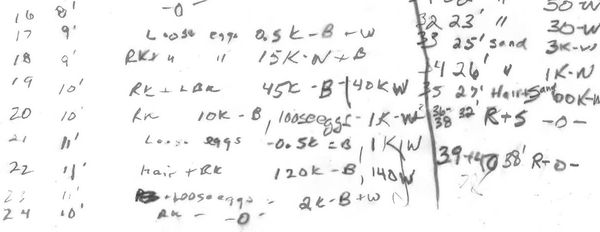 16 8' -0-
17 9' Loose eggs 0.5K-B+W
18 9' RK+ " " 15K-N+B
19 10' RK + LBK 45K-B+40KW
20 10' RK 10K-B, loose eggs-1K-W
21 11' Loose eggs -0.5K=B, 1K W
22 11' Hair + RK 120K-B, 140W
23 11' +Loose eggs - 2K-B+W
24 10' RK - -0-
50-W
32 23' " 30-W
33 25' sand 3K-W
34 26' " 1K-N
35 27' Hair+Sand 60K-W
36-38 32' R+S -0-
39+40 38' R-0-